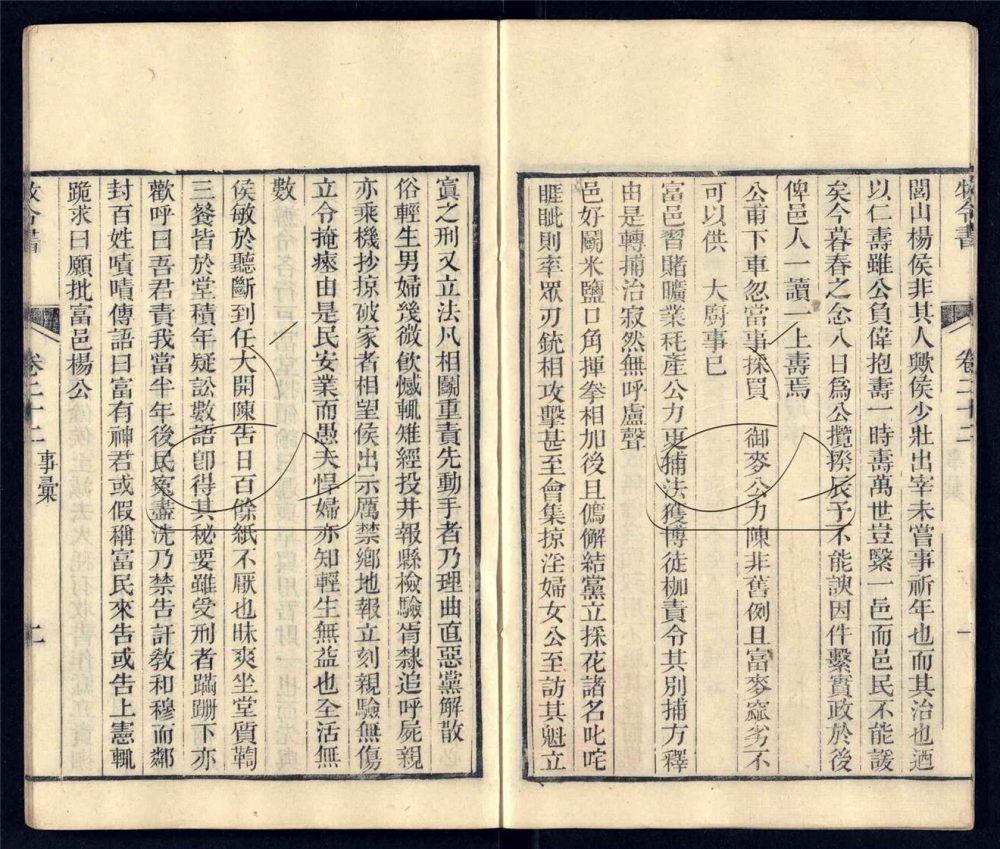 牧令書
卷二十二
一
閭山楊侯非其人歟侯少壯出宰未嘗事祈年也而其治也迺
以仁壽雖公負偉抱壽一時壽萬世豈繫一邑而邑民不能諼
矣今暮春之念八日爲公攬揆辰予不能諛因件繫實政於後
俾邑人一讀一上壽焉
公甫下車忽當事採買 御麥公力陳非舊例且富麥窳劣不
可以供 大廚事已
富邑習賭曠業秏產公力更捕法獲博徒枷責令其別捕方釋
由是轉捕治寂然無呼盧聲
邑好鬭米鹽口角揮拳相加後且傌僻結黨立採花諸名叱咤
睚眦則率眾刃銃相攻擊甚至會集掠淫婦女公至訪其魁立
寘之刑又立法凡相鬭重責先動手者乃理曲直惡黨解散
俗輕生男婦幾微飲憾輒雉經投井報縣檢驗胥隸追呼屍親
亦乘機抄掠破家者相望侯出示厲禁鄉地報立刻親驗無傷
立令掩瘞由是民安業而愚夫悍婦亦知輕生無益也全活無
數
侯敏於聽斷到任大開陳告日百餘紙不厭也昧爽坐堂質鞫
三餐皆於堂積年疑訟數語卽得其秘要雖受刑者蹣跚下亦
歡呼曰吾君責我當半年後民寃盡洗乃禁告訐敎和穆而鄰
封百姓嘖嘖傳語曰富有神君或假稱富民來告或告上憲輒
跪求曰願批富邑楊公
牧令書
卷二十二
事彙